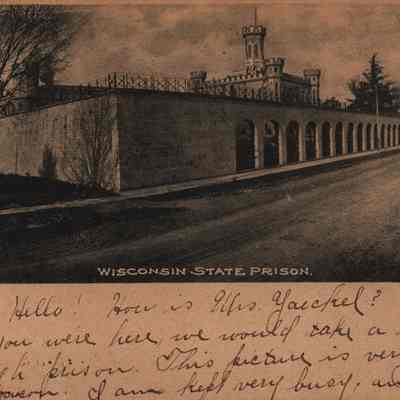 WISCONSIN STATE PRISON.
Hello! How is Mrs. Yaeckel?
you were here we would take a
prison. This picture is ver
I am kept very busy, an